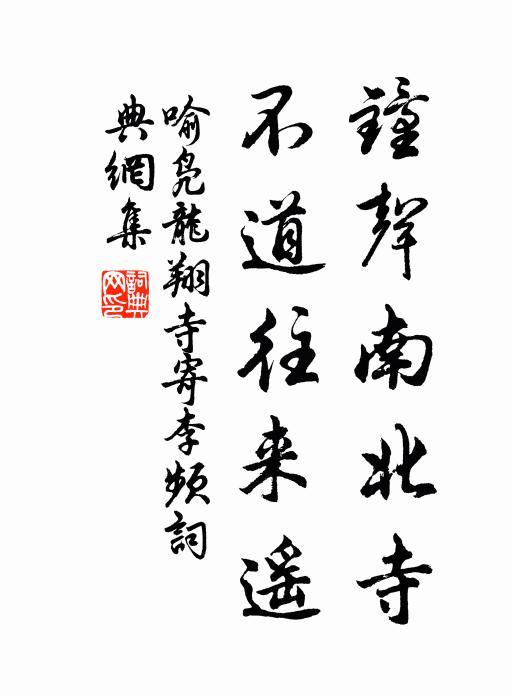 鐘聲南北寺
不道往来遥
喻凫龍翔寺寄李頻詞
典網集
詞典
网印